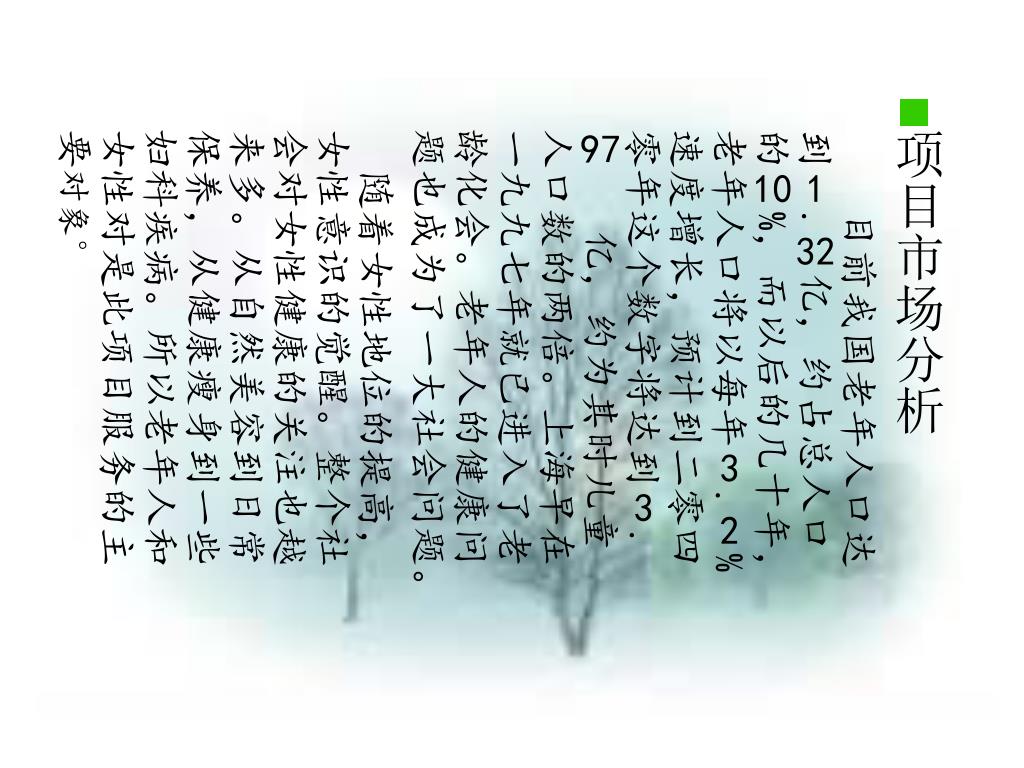 ■项目市场分析
目前我国老年人口达
到1.32亿,约占总人口
的10%,而以后的几十年,
老年人口将以每年3.2%
速度增长,预计到二零四
零年这个数字将达到3.
97亿,约为其时儿童
人口数的两倍。上海早在
一九九七年就已进入了老
龄化会。老年人的健康问
题也成为了一大社会问题。
随着女性地位的提高,
女性意识的觉醒。整个社
会对女性健康的关注也越
来多。从自然美容到日常
保养,从健康瘦身到一些
妇科疾病。所以老年人和
女性对是此项目服务的主
要对象。